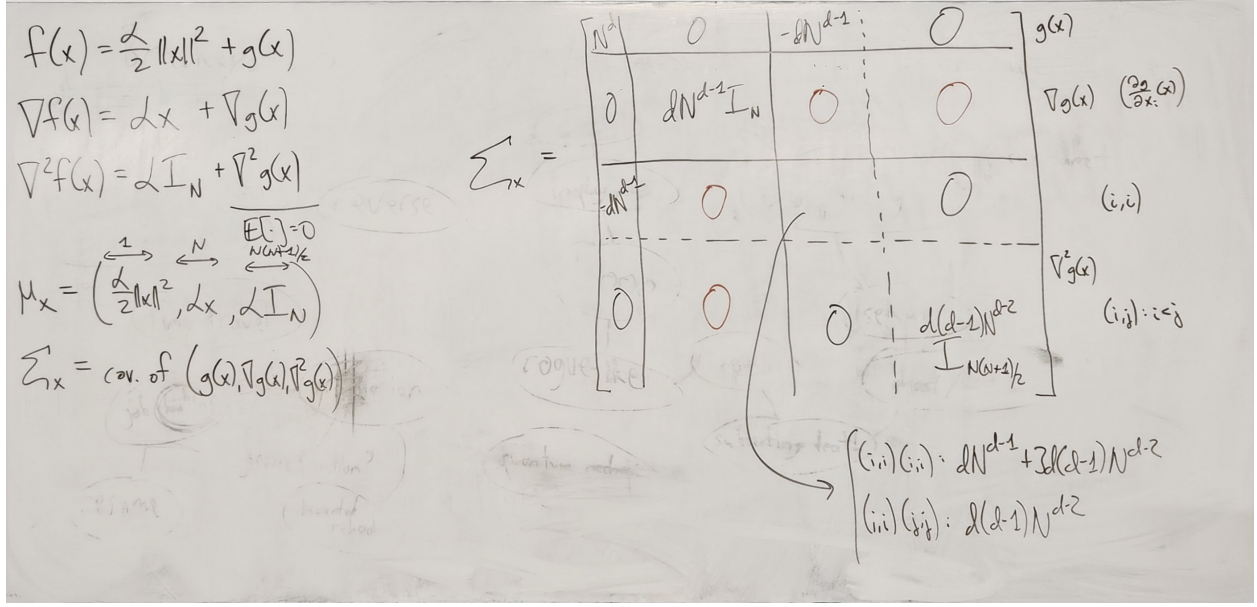 f(x) = α/2 ||x||² + g(x)
∇f(x) = αx + ∇g(x)
∇²f(x) = αI_N + ∇²g(x)
E[·]=0
1 N N(N+1)/2
μ_x = (α/2 ||x||², αx, αI_N)
Σ_x = cov. of (g(x), ∇g(x), ∇²g(x))
Σ_x =
N^d 0 -dN^{d-1} 0 g(x)
0 dN^{d-1} I_N 0 0 ∇g(x) (∂g/∂x_i (x))
-dN^{d-1} 0 0 (i,i)
∇²g(x)
0 0 0 d(d-1)N^{d-2} I_{N(N+1)/2} (i,j): i<j
(i,i)(i,i): dN^{d-1}+3d(d-1)N^{d-2}
(i,i)(j,j): d(d-1)N^{d-2}